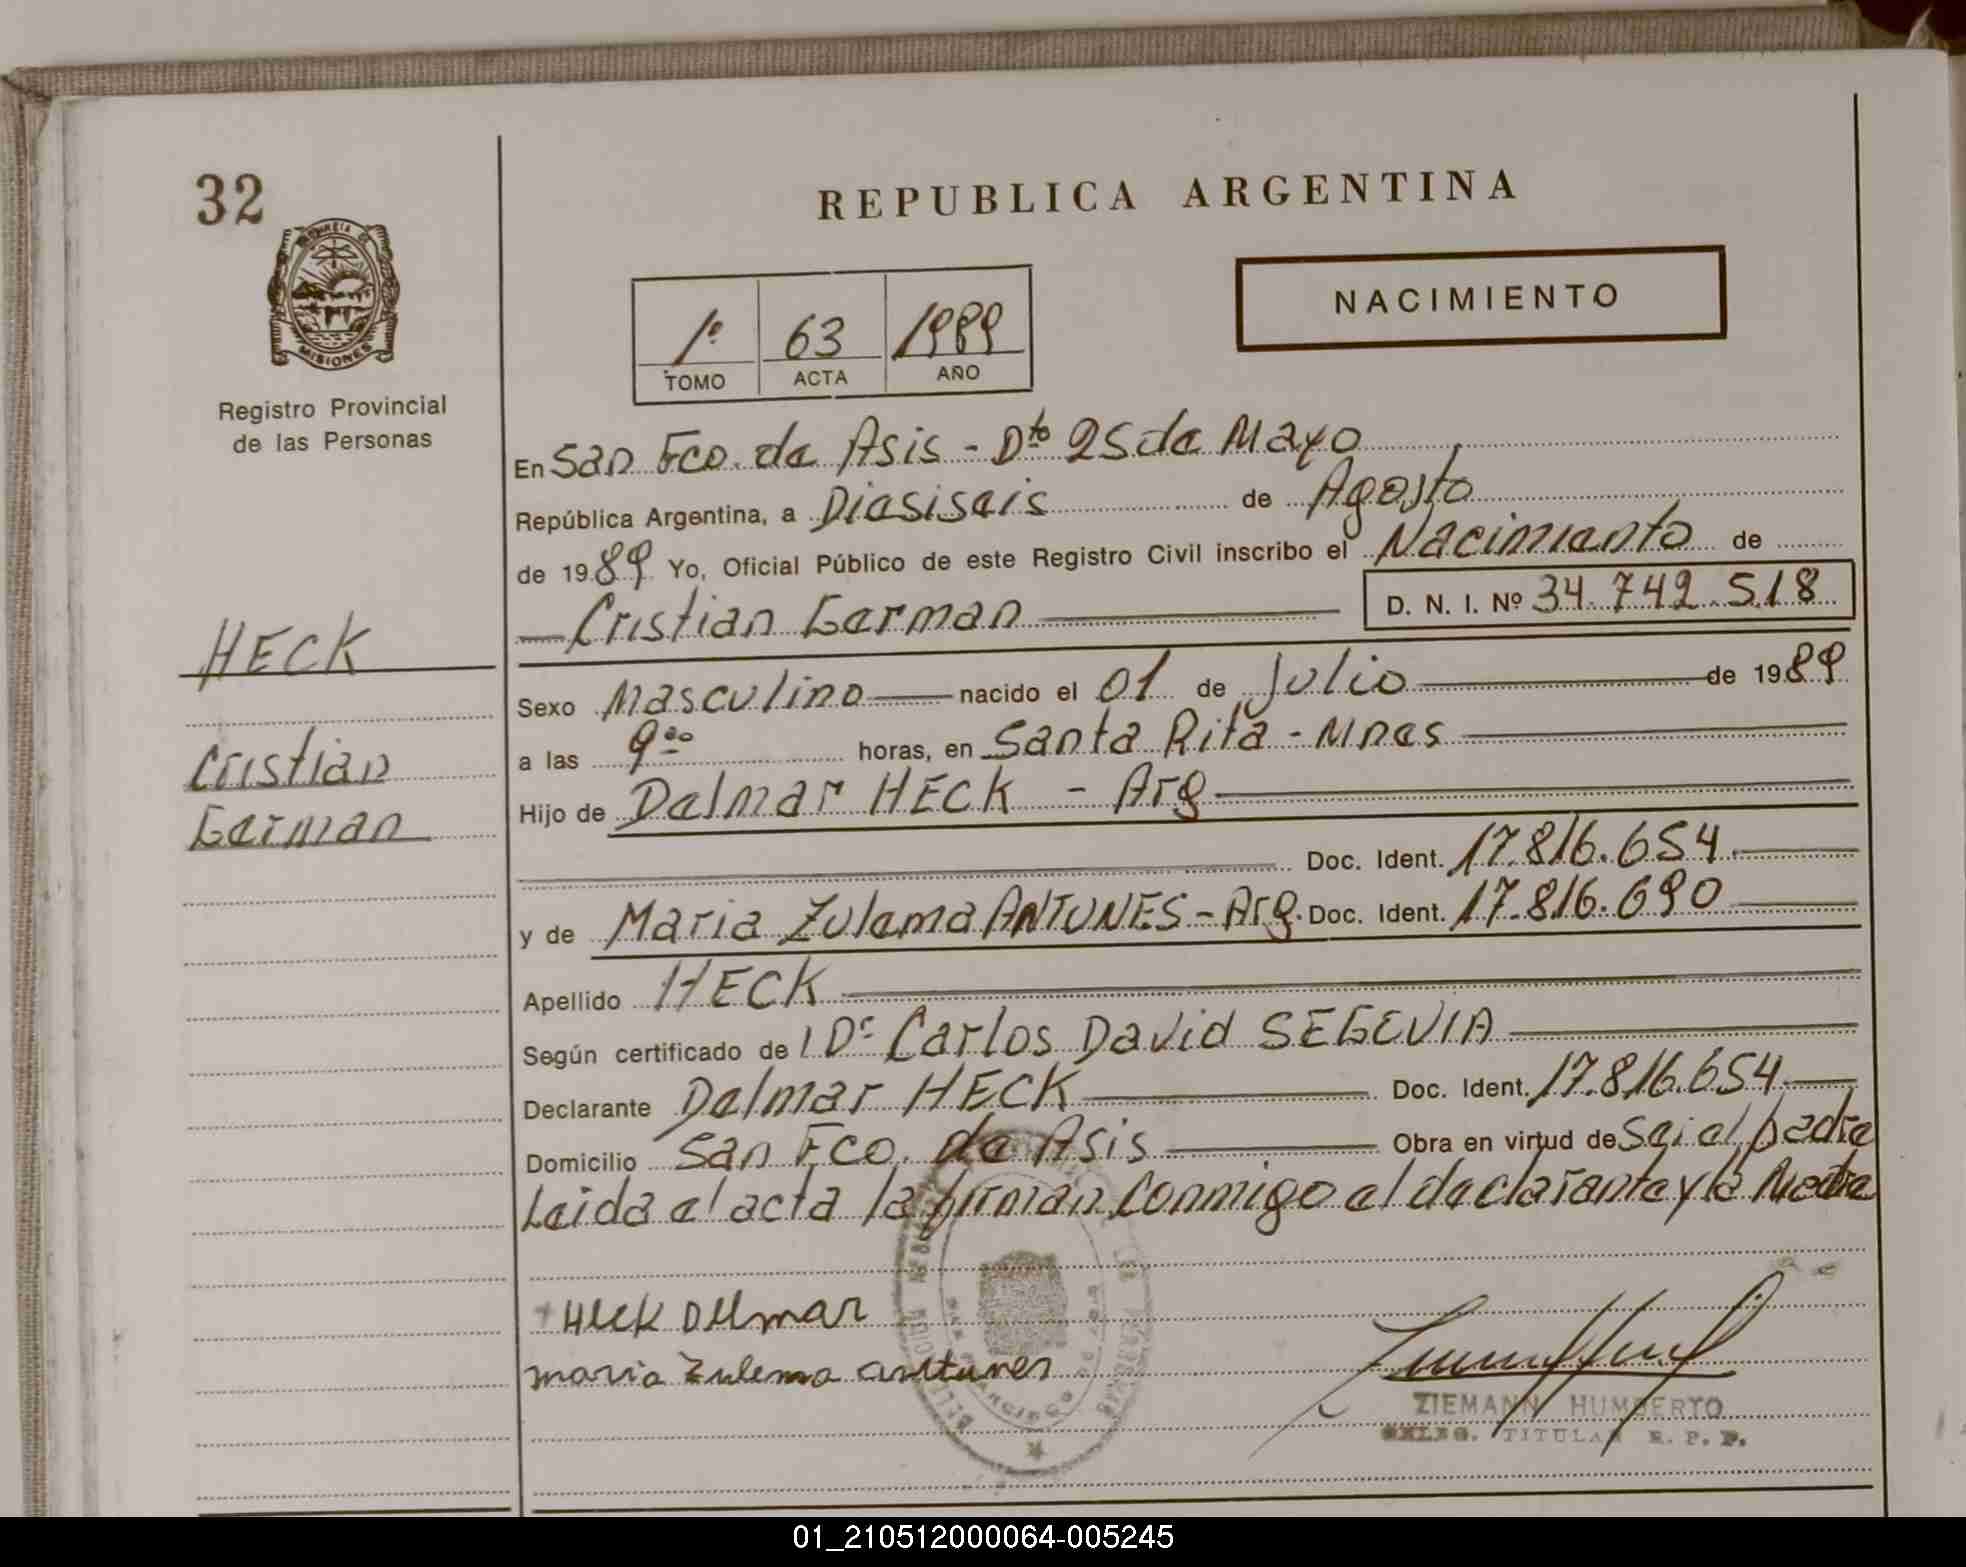 32
REPUBLICA ARGENTINA
MISIONES
Registro Provincial
de las Personas
NACIMIENTO
1º 63 1989
TOMO ACTA AÑO
En San Fco. de Asis - Dto 25 de Mayo
República Argentina, a Diesiseis de Agosto
de 1989 Yo, Oficial Público de este Registro Civil inscribo el Nacimiento de
Cristian German D. N. I. Nº 34.742.518
HECK
Cristian
German
Sexo Masculino nacido el 01 de Julio de 1989
a las 9 00 horas, en Santa Rita - Mnes
Hijo de Delmar HECK - Arg
Doc. Ident. 17.816.654
y de Maria Zulema ANTUNES - Arg. Doc. Ident. 17.816.690
Apellido HECK
Según certificado de l Dr Carlos David SEGOVIA
Declarante Delmar HECK Doc. Ident. 17.816.654
Domicilio San Fco. de Asis Obra en virtud de Sei el padre
Leida el acta la firman conmigo el declarante y la Madre
Heck Delmar
maria Zulema anttunes
ZIEMANN HUMBERTO
DELEG. TITULAR R. P. P.
01_210512000064-005245